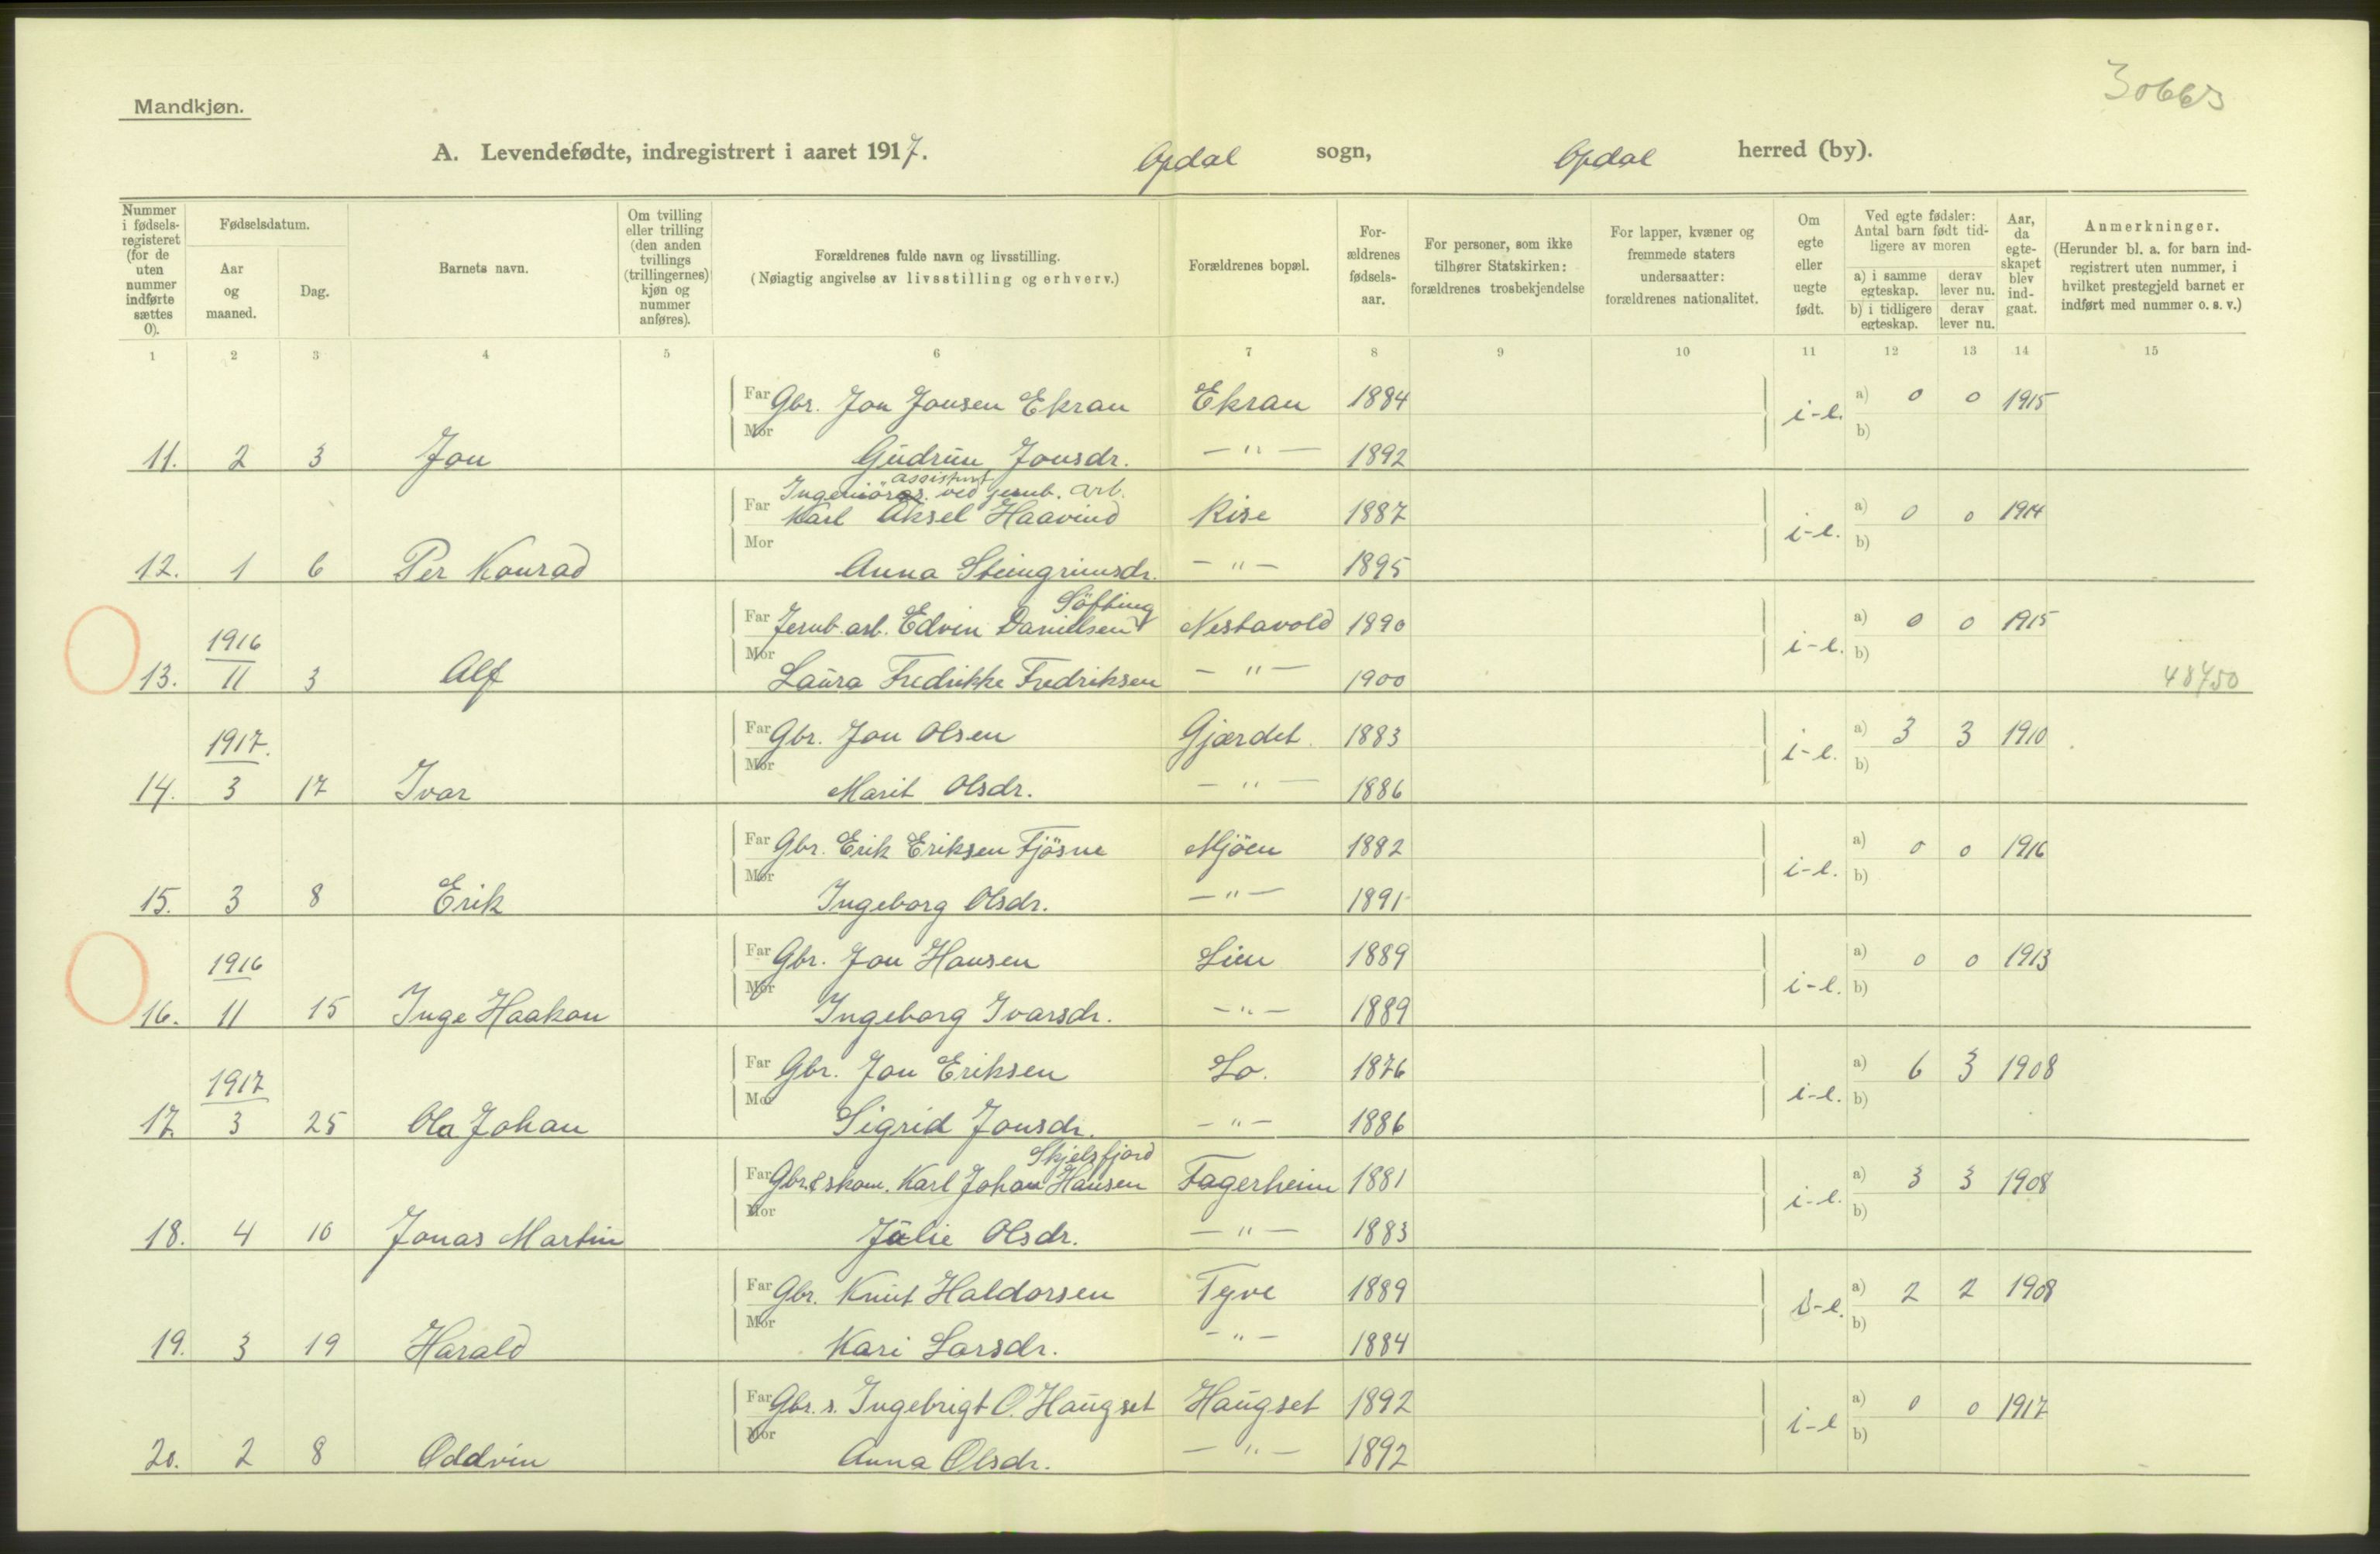 30663
Mandkjøn.
A. Levendefødte, indregistrert i aaret 1917. Opdal sogn, Opdal herred (by).
Nummer i fødsels-registeret (for de uten nummer indførte sættes 0).
Fødselsdatum.
Aar og maaned.
Dag.
Barnets navn.
Om tvilling eller trilling (den anden tvillings (trillingernes) kjøn og nummer anføres).
Forældrenes fulde navn og livsstilling.
(Nøiagtig angivelse av livsstilling og erhverv.)
Forældrenes bopæl.
For-ældrenes fødsels-aar.
For personer, som ikke tilhører Statskirken: forældrenes trosbekjendelse
For lapper, kvæner og fremmede staters undersaatter: forældrenes nationalitet.
Om egte eller uegte født.
Ved egte fødsler: Antal barn født tid-ligere av moren
a) i samme egteskap.
derav lever nu.
b) i tidligere egteskap.
derav lever nu.
Aar, da egte-skapet blev ind-gaat.
Anmerkninger.
(Herunder bl. a. for barn ind-registrert uten nummer, i hvilket prestegjeld barnet er indført med nummer o. s. v.)
1 2 3 4 5 6 7 8 9 10 11 12 13 14 15
Far Gbr. Jon Jonsen Ekran Ekran 1884 i-e. a) 0 0 1915
Mor b)
11. 2 3 Jon Gudrun Jonsdr. — " — 1892
assistent
Ingeniör ved jernb. arb.
Far Karl Aksel Haavind Rise 1887 i-e. a) 0 0 1914
Mor b)
12. 1 6 Per Konrad Anna Steingrimsdr. — " — 1895
Söfting
Far Jernb. arb. Edvin Danielsen Nestavold 1890 i-e. a) 0 0 1915
1916
Mor b)
13. 11 3 Alf Laura Fredrikke Fredriksen — " — 1900 48750
Far Gbr. Jon Olsen Gjærdet 1883 i-e. a) 3 3 1910
1917.
Mor b)
14. 3 17 Ivar Marit Olsdr. — " — 1886
Far Gbr. Erik Eriksen Fjösne Mjöen 1882 i-e. a) 0 0 1916
Mor b)
15. 3 8 Erik Ingeborg Olsdr. — " — 1891
Far Gbr. Jon Hansen Lien 1889 i-e. a) 0 0 1913
1916
Mor b)
16. 11 15 Inge Haakon Ingeborg Ivarsdr. — " — 1889
Far Gbr. Jon Eriksen Lo. 1876 i-e. a) 6 3 1908
1917
Mor b)
17. 3 25 Ola Johan Sigrid Jonsdr. — " — 1886
Skjelsfjord
Far Gbr. & skom. Karl Johan Hansen Fagerheim 1881 i-e. a) 3 3 1908
Mor b)
18. 4 10 Jonas Martin Julie Olsdr. — " — 1883
Far Gbr. Knut Haldorsen Tyve 1889 i-e. a) 2 2 1908
Mor b)
19. 3 19 Harald Kari Larsdr. — " — 1884
Far Gbr. s. Ingebrigt O. Haugset Haugset 1892 i-e a) 0 0 1917
Mor b)
20. 2 8 Oddvin Anna Olsdr. — " — 1892